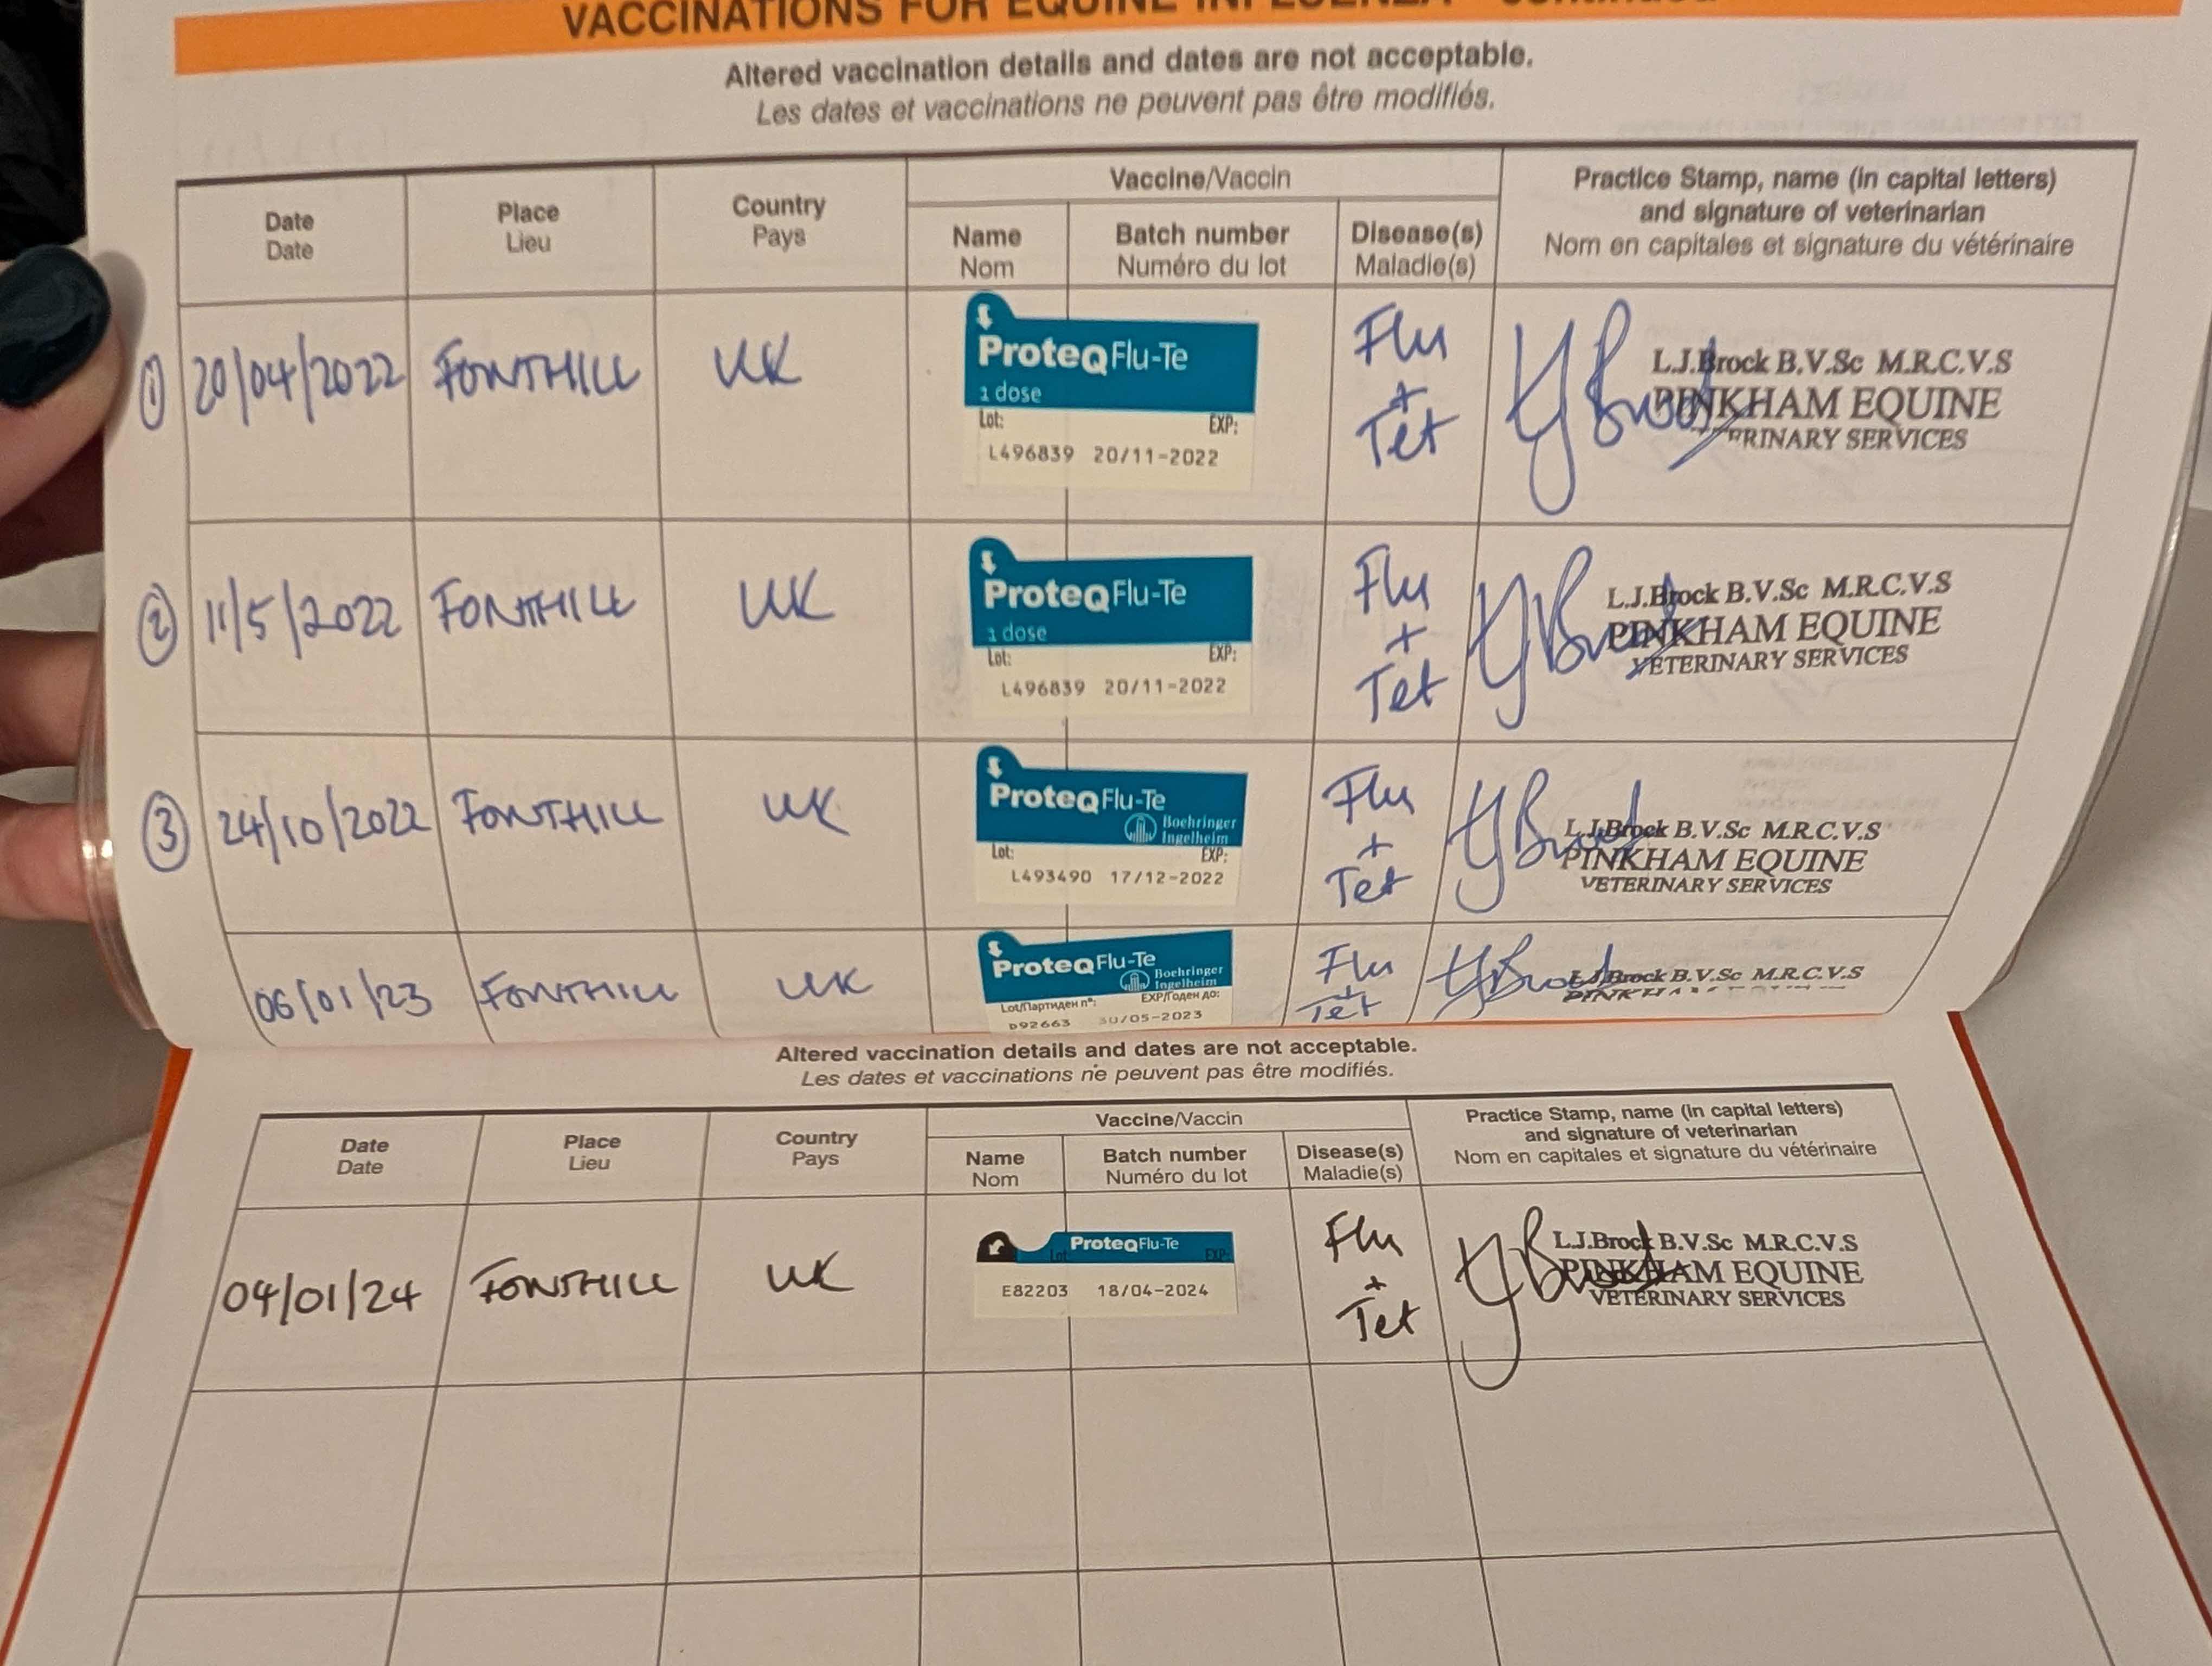 VACCINATIONS FOR EQUINE INFLUENZA - continued
Altered vaccination details and dates are not acceptable.
Les dates et vaccinations ne peuvent pas être modifiés.
Date
Date
Place
Lieu
Country
Pays
Vaccine/Vaccin
Name
Nom
Batch number
Numéro du lot
Disease(s)
Maladie(s)
Practice Stamp, name (in capital letters)
and signature of veterinarian
Nom en capitales et signature du vétérinaire
① 20/04/2022 FONTHILL UK
ProteqFlu-Te
1 dose
Lot: EXP:
L496839 20/11-2022
Flu
+
Tet
L.J.Brock B.V.Sc M.R.C.V.S
PINKHAM EQUINE
VETERINARY SERVICES
② 11/5/2022 FONTHILL UK
ProteqFlu-Te
1 dose
Lot: EXP:
L496839 20/11-2022
Flu
+
Tet
L.J.Brock B.V.Sc M.R.C.V.S
PINKHAM EQUINE
VETERINARY SERVICES
③ 24/10/2022 FONTHILL UK
ProteqFlu-Te
Boehringer
Ingelheim
Lot: EXP:
L493490 17/12-2022
Flu
+
Tet
L.J.Brock B.V.Sc M.R.C.V.S
PINKHAM EQUINE
VETERINARY SERVICES
06/01/23 FONTHILL UK
ProteqFlu-Te
Boehringer
Ingelheim
Lot/Партиден n°: EXP/Годен до:
D92663 30/05-2023
Flu
+
Tet
L.J.Brock B.V.Sc M.R.C.V.S
PINKHAM
Altered vaccination details and dates are not acceptable.
Les dates et vaccinations ne peuvent pas être modifiés.
Date
Date
Place
Lieu
Country
Pays
Vaccine/Vaccin
Name
Nom
Batch number
Numéro du lot
Disease(s)
Maladie(s)
Practice Stamp, name (in capital letters)
and signature of veterinarian
Nom en capitales et signature du vétérinaire
04/01/24 FONTHILL UK
ProteqFlu-Te
Lot: EXP:
E82203 18/04-2024
Flu
+
Tet
L.J.Brock B.V.Sc M.R.C.V.S
PINKHAM EQUINE
VETERINARY SERVICES